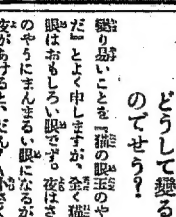 どうして變る
のでせう?
變り易いことを『猫の眼玉のや
だ』とよく申しますが、全く猫
眼はおもしろい眼です。夜はさ
のやうにまんまるい眼になるが